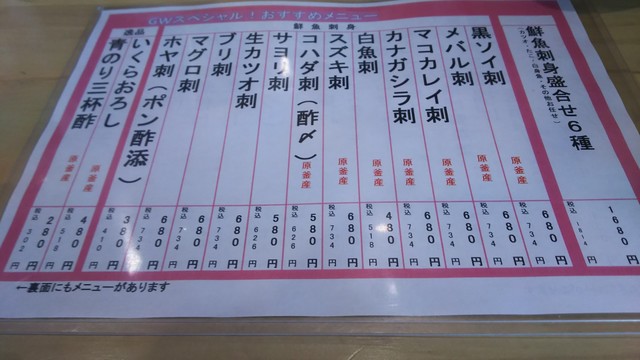 GWスペシャル！おすすめメニュー
鮮魚刺身
鮮魚刺身盛合せ６種
(カツオ・たこ・白身魚・その他お任せ)
1680円
税込 1814円
黒ソイ刺
原釜産
680円
税込 734円
メバル刺
原釜産
680円
税込 734円
マコカレイ刺
原釜産
680円
税込 734円
カナガシラ刺
原釜産
680円
税込 734円
白魚刺
原釜産
480円
税込 518円
スズキ刺
原釜産
680円
税込 734円
コハダ刺（酢〆）
原釜産
580円
税込 626円
サヨリ刺
580円
税込 626円
生カツオ刺
680円
税込 734円
ブリ刺
680円
税込 734円
マグロ刺
680円
税込 734円
ホヤ刺（ポン酢添）
680円
税込 734円
逸品
いくらおろし
原釜産
480円
税込 518円
青のり三杯酢
原釜産
280円
税込 302円
380円
税込 410円
←裏面にもメニューがあります